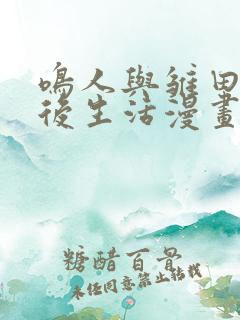 鳴人與雛田
後生活漫畫
糖醋百骨
未經同意禁止轉載